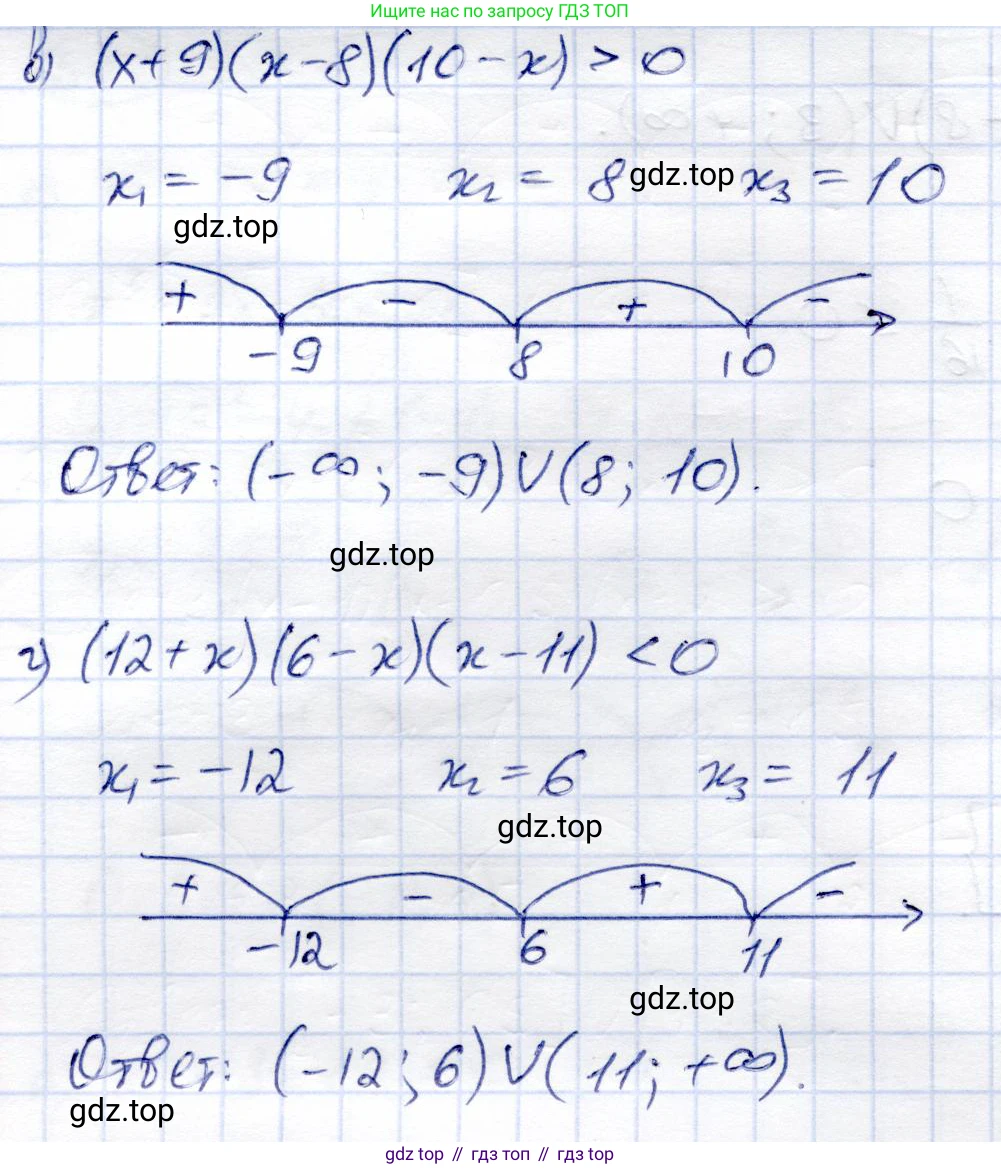 Ищите нас по запросу ГДЗ ТОП
в) (x+9)(x-8)(10-x) > 0
x₁ = -9 x₂ = 8 gdz.top x₃ = 10
gdz.top
+ - + -
-9 8 10
Ответ: (-∞; -9) ∪ (8; 10).
gdz.top
г) (12+x)(6-x)(x-11) < 0
x₁ = -12 x₂ = 6 x₃ = 11
gdz.top
+ - + -
-12 6 11
gdz.top
Ответ: (-12; 6) ∪ (11; +∞).
gdz.top
gdz top // гдз топ // гдз top